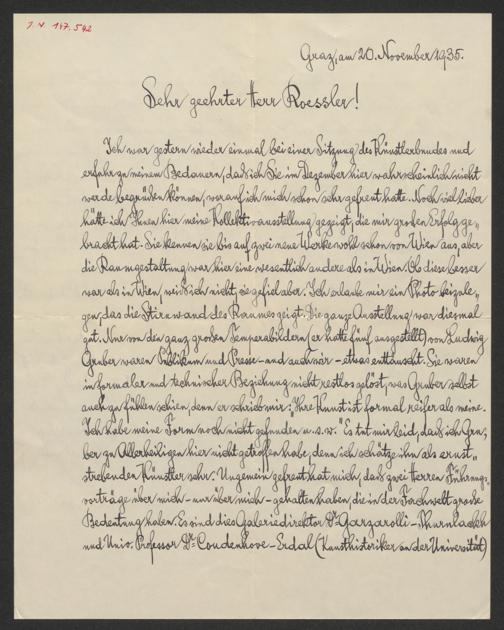 J. N. 147.542
Graz, am 20. November 1935.
Sehr geehrter Herr Roessler!
Ich war gestern wieder einmal bei einer Sitzung des Künstlerbundes und
erfuhr zu meinem Bedauern, daß ich Sie im Dezember hier wahrscheinlich nicht
werde begrüßen können, worauf ich mich schon sehr gefreut hatte. Noch viel lieber
hätte ich Ihnen hier meine Kollektivausstellung gezeigt, die mir großen Erfolg ge-
bracht hat. Sie kennen sie bis auf zwei neue Werke wohl schon von Wien aus, aber
die Raumgestaltung war hier eine wesentlich andere als in Wien. Ob diese besser
war als in Wien, weiß ich nicht, sie gefiel aber. Ich erlaube mir ein Photo beizule-
gen, das die Stirnwand des Raumes zeigt. Die ganze Ausstellung war diesmal
gut. Nur von den ganz großen Temperabildern (er hatte fünf ausgestellt) von Ludwig
Gruber waren Publikum und Presse – und auch wir – etwas enttäuscht. Sie waren
in formaler und technischer Beziehung nicht restlos gelöst, was Gruber selbst
auch zu fühlen schien, denn er schrieb mir: "Ihre Kunst ist formal reifer als meine.
Ich habe meine Form noch nicht gefunden u.s.w." Es tut mir leid, daß ich Gru-
ber zu Allerheiligen hier nicht getroffen habe, denn ich schätze ihn als ernst
strebenden Künstler sehr. Ungemein gefreut hat mich, daß zwei Herren Führungs-
vorträge über mich – nur über mich – gehalten haben, die in der Fachwelt große
Bedeutung haben. Es sind dies Galeriedirektor Dr. Garzarolli-Thurnlackh
und Univ. Professor Dr. Coudenhove-Erthal (Kunsthistoriker an der Universität)